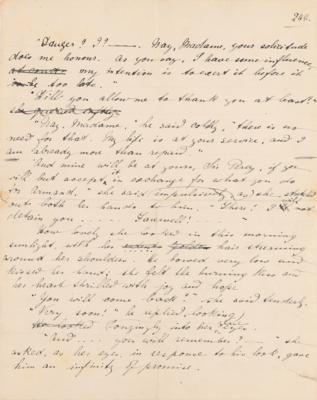 266.
"Danger? I? ——. Nay, Madame, your solicitude
does me honour. As you say, I have some influence,
my intention is to exert it before it
be too late."
"Will you allow me to thank you at least?"
"Nay, Madame," he said coldly, "there is no
need for that. My life is at your service, and I
am already more than repaid."
"And mine will be at yours, Sir Percy, if you
will but accept it in exchange for what you do
for Armand," she said impulsively, as she stretched
out both her hands to him. "There! I will not
detain you ..... Farewell!"
How lovely she looked in this morning
sunlight, with her hair streaming
around her shoulders. He bowed very low and
kissed her hand; she felt the burning kiss and
her heart thrilled with joy and hope
"You will come back?" she said tenderly.
"Very soon!" he replied, looking
longingly into her blue eyes.
"And .... you will remember? ....." she
asked, as her eyes, in response to his look, gave
him an infinity of promise.